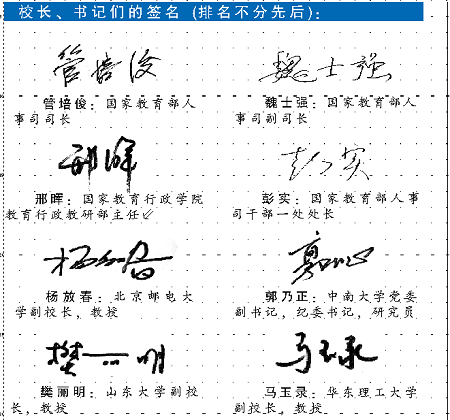 校长、书记们的签名 (排名不分先后):
管培俊
魏士强
管培俊:国家教育部人
事司司长
魏士强:国家教育部人
事司副司长
邢晖
彭实
邢晖:国家教育行政学院
教育行政教研部主任
彭实:国家教育部人事
司干部一处处长
杨放春
郭乃正
杨放春:北京邮电大
学副校长,教授
郭乃正:中南大学党委
副书记,纪委书记,研究员
樊丽明
马玉录
樊丽明:山东大学副校
长,教授
马玉录:华东理工大学
副校长,教授